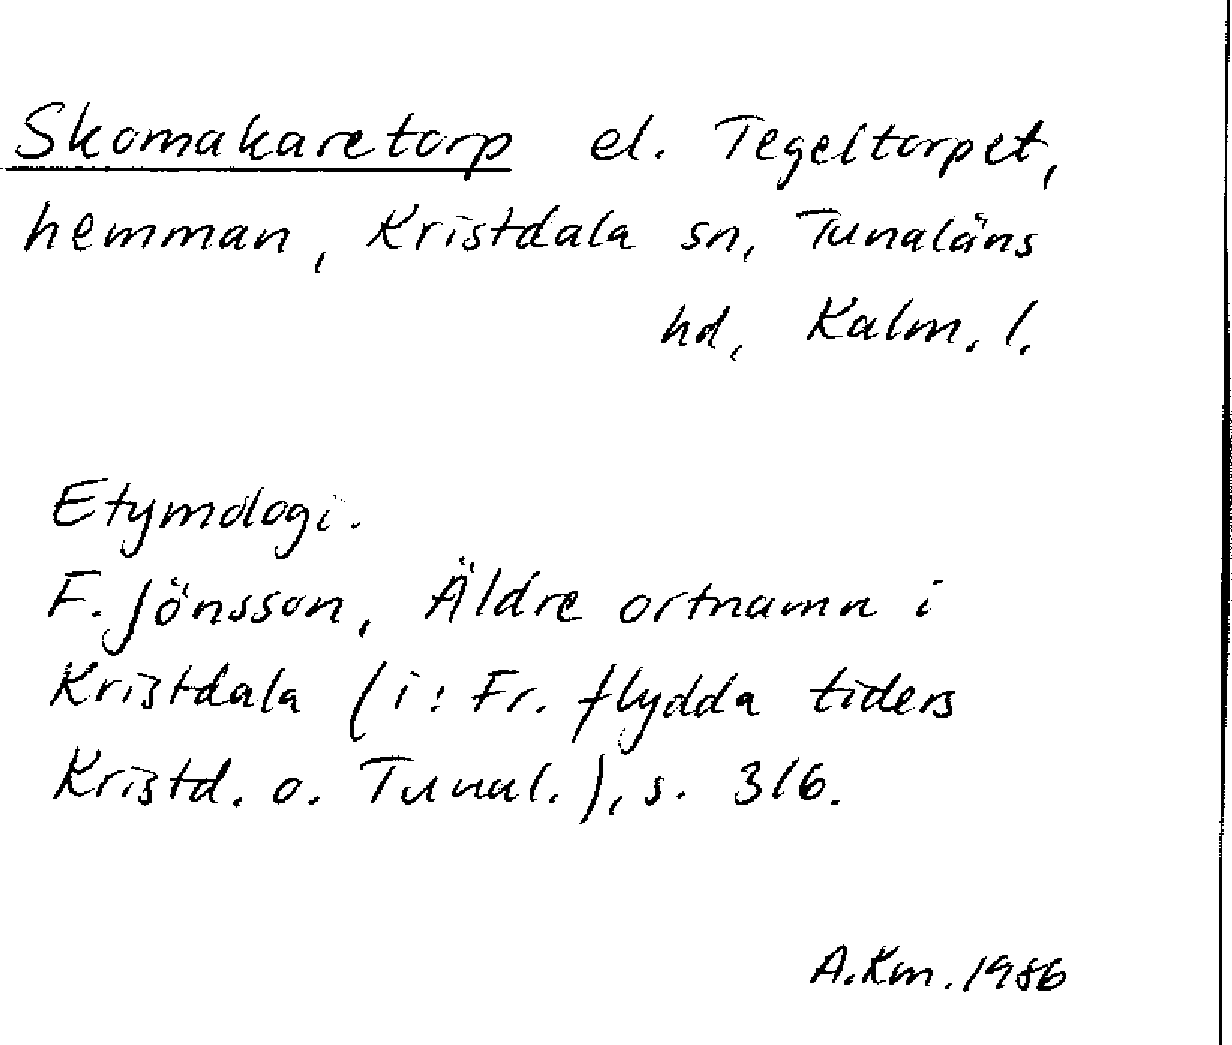 Skomakaretorp el. Tegeltorpet,
hemman, Kristdala sn, Tunaläns
hd, Kalm. l.
Etymologi.
F. Jönsson, Äldre ortnamn i
Kristdala (i: Fr. flydda tiders
Kristd. o. Tunal.), s. 316.
A.Km. 1986